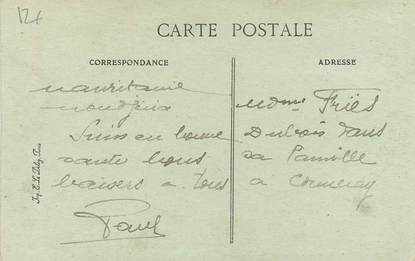 12 x
CARTE POSTALE
CORRESPONDANCE
ADRESSE
mauritanie
Suis en bonne
sante bons
baisers a tous
Paul
Mdme Friès
Dubois dans
sa Famille
a
Imp. E. Le Deley, Paris